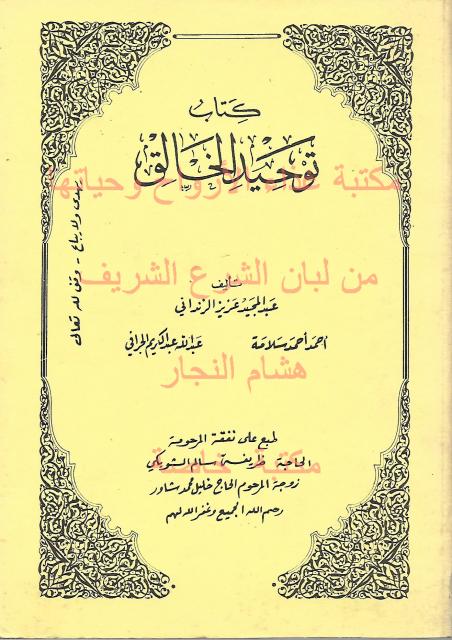 كتاب
توحيد الخالق
مكتبة غذاء الأرواح وحياتها
من لبان الشرع الشريف
تأليف
عبد المجيد عزيز الزنداني
أحمد أحمد سلامة عبد الله عبد الكريم الجرافي
هشام النجار
طبع على نفقة المرحومة
الحاجة ظريفة سالم الشويكي
مكتبة خاصة
زوجة المرحوم الحاج خليل محمد شاور
رحم الله الجميع وغفر الله لهم
يهدى ولا يباع - وقف لله تعالى